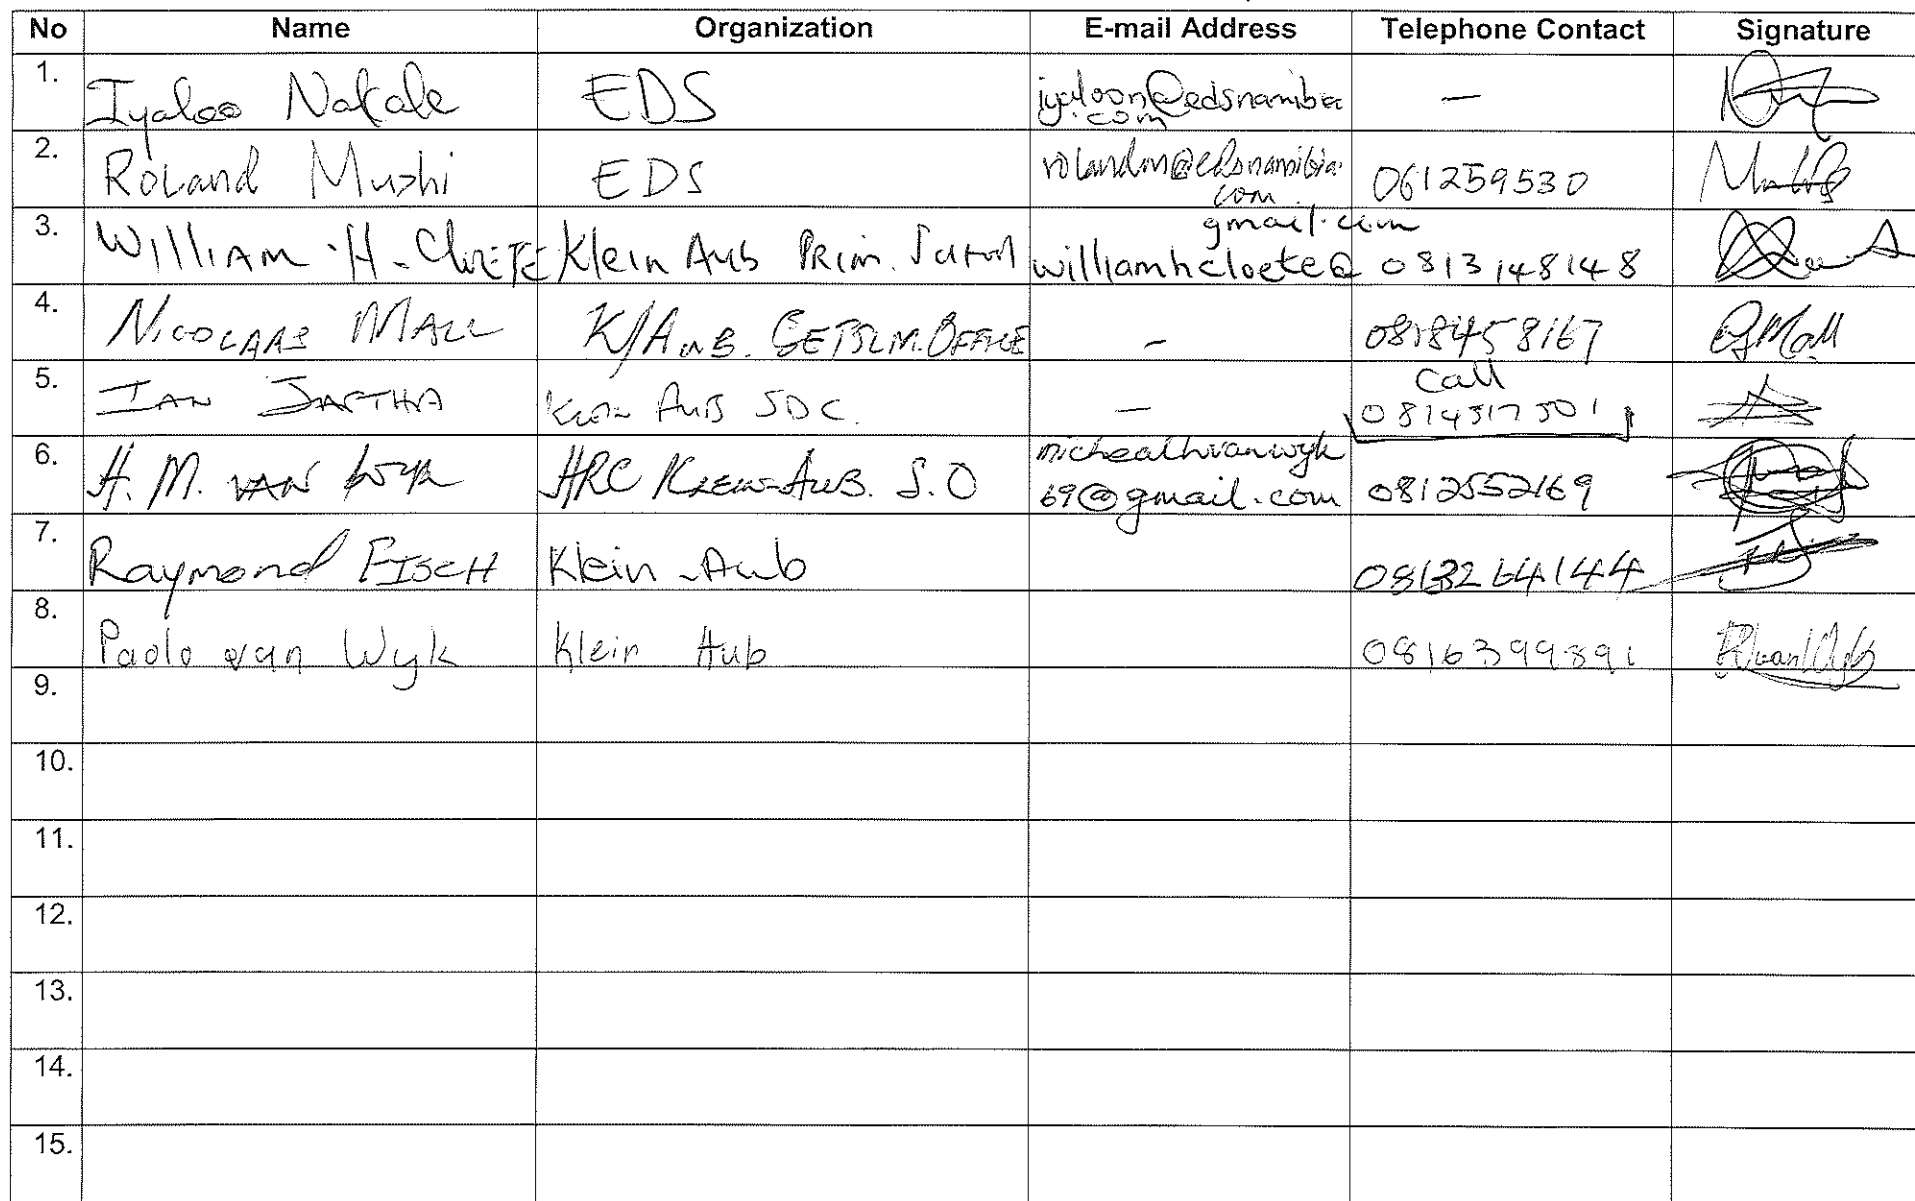 No Name Organization E-mail Address Telephone Contact Signature
1. Iyaloo Nakale EDS iyaloon@edsnamibia —
.com
2. Roland Mushi EDS rolandm@edsnamibia. 061259530
com
gmail.com
3. William .H. Cloete Klein Aub Prim. School williamhcloete@ 0813148148
4. Nicolaas Mall K/Aub. SETTLM. OFFICE - 0818458167
Call
5. Ian Jaftha Klein Aub SDC. — 0814517501
michealhvanwyk
6. H. M. van Wyk HRC Klein-Aub. S.O 69@gmail.com 0812552169
7. Raymond Fisch Klein-Aub 0813264144
8. Paolo van Wyk Klein Aub 0816399891
9.
10.
11.
12.
13.
14.
15.